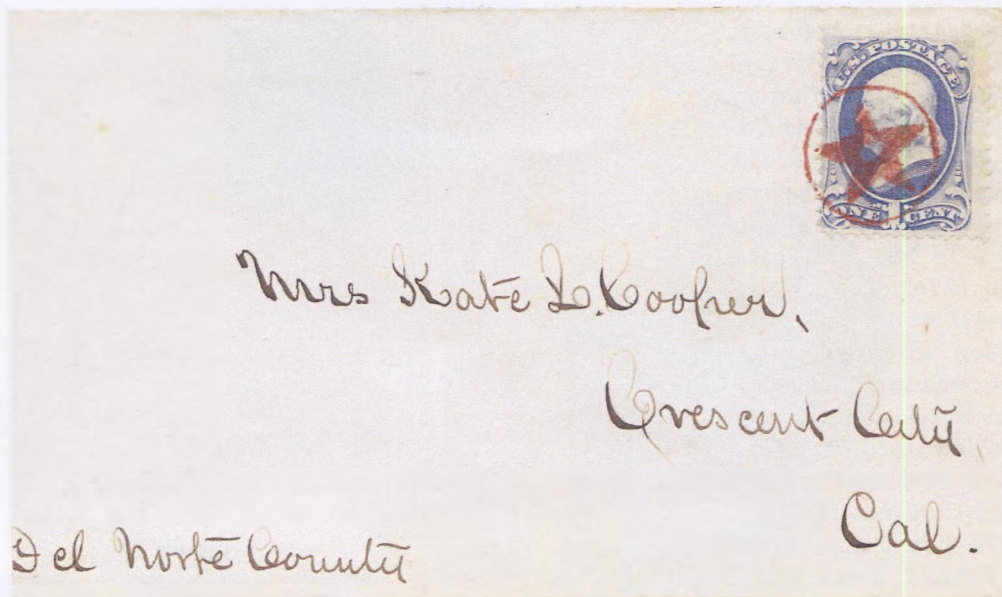 U.S. POSTAGE
ONE 1 CENT
Mrs Kate L. Cooper,
Crescent City
Cal.
Del Norte County